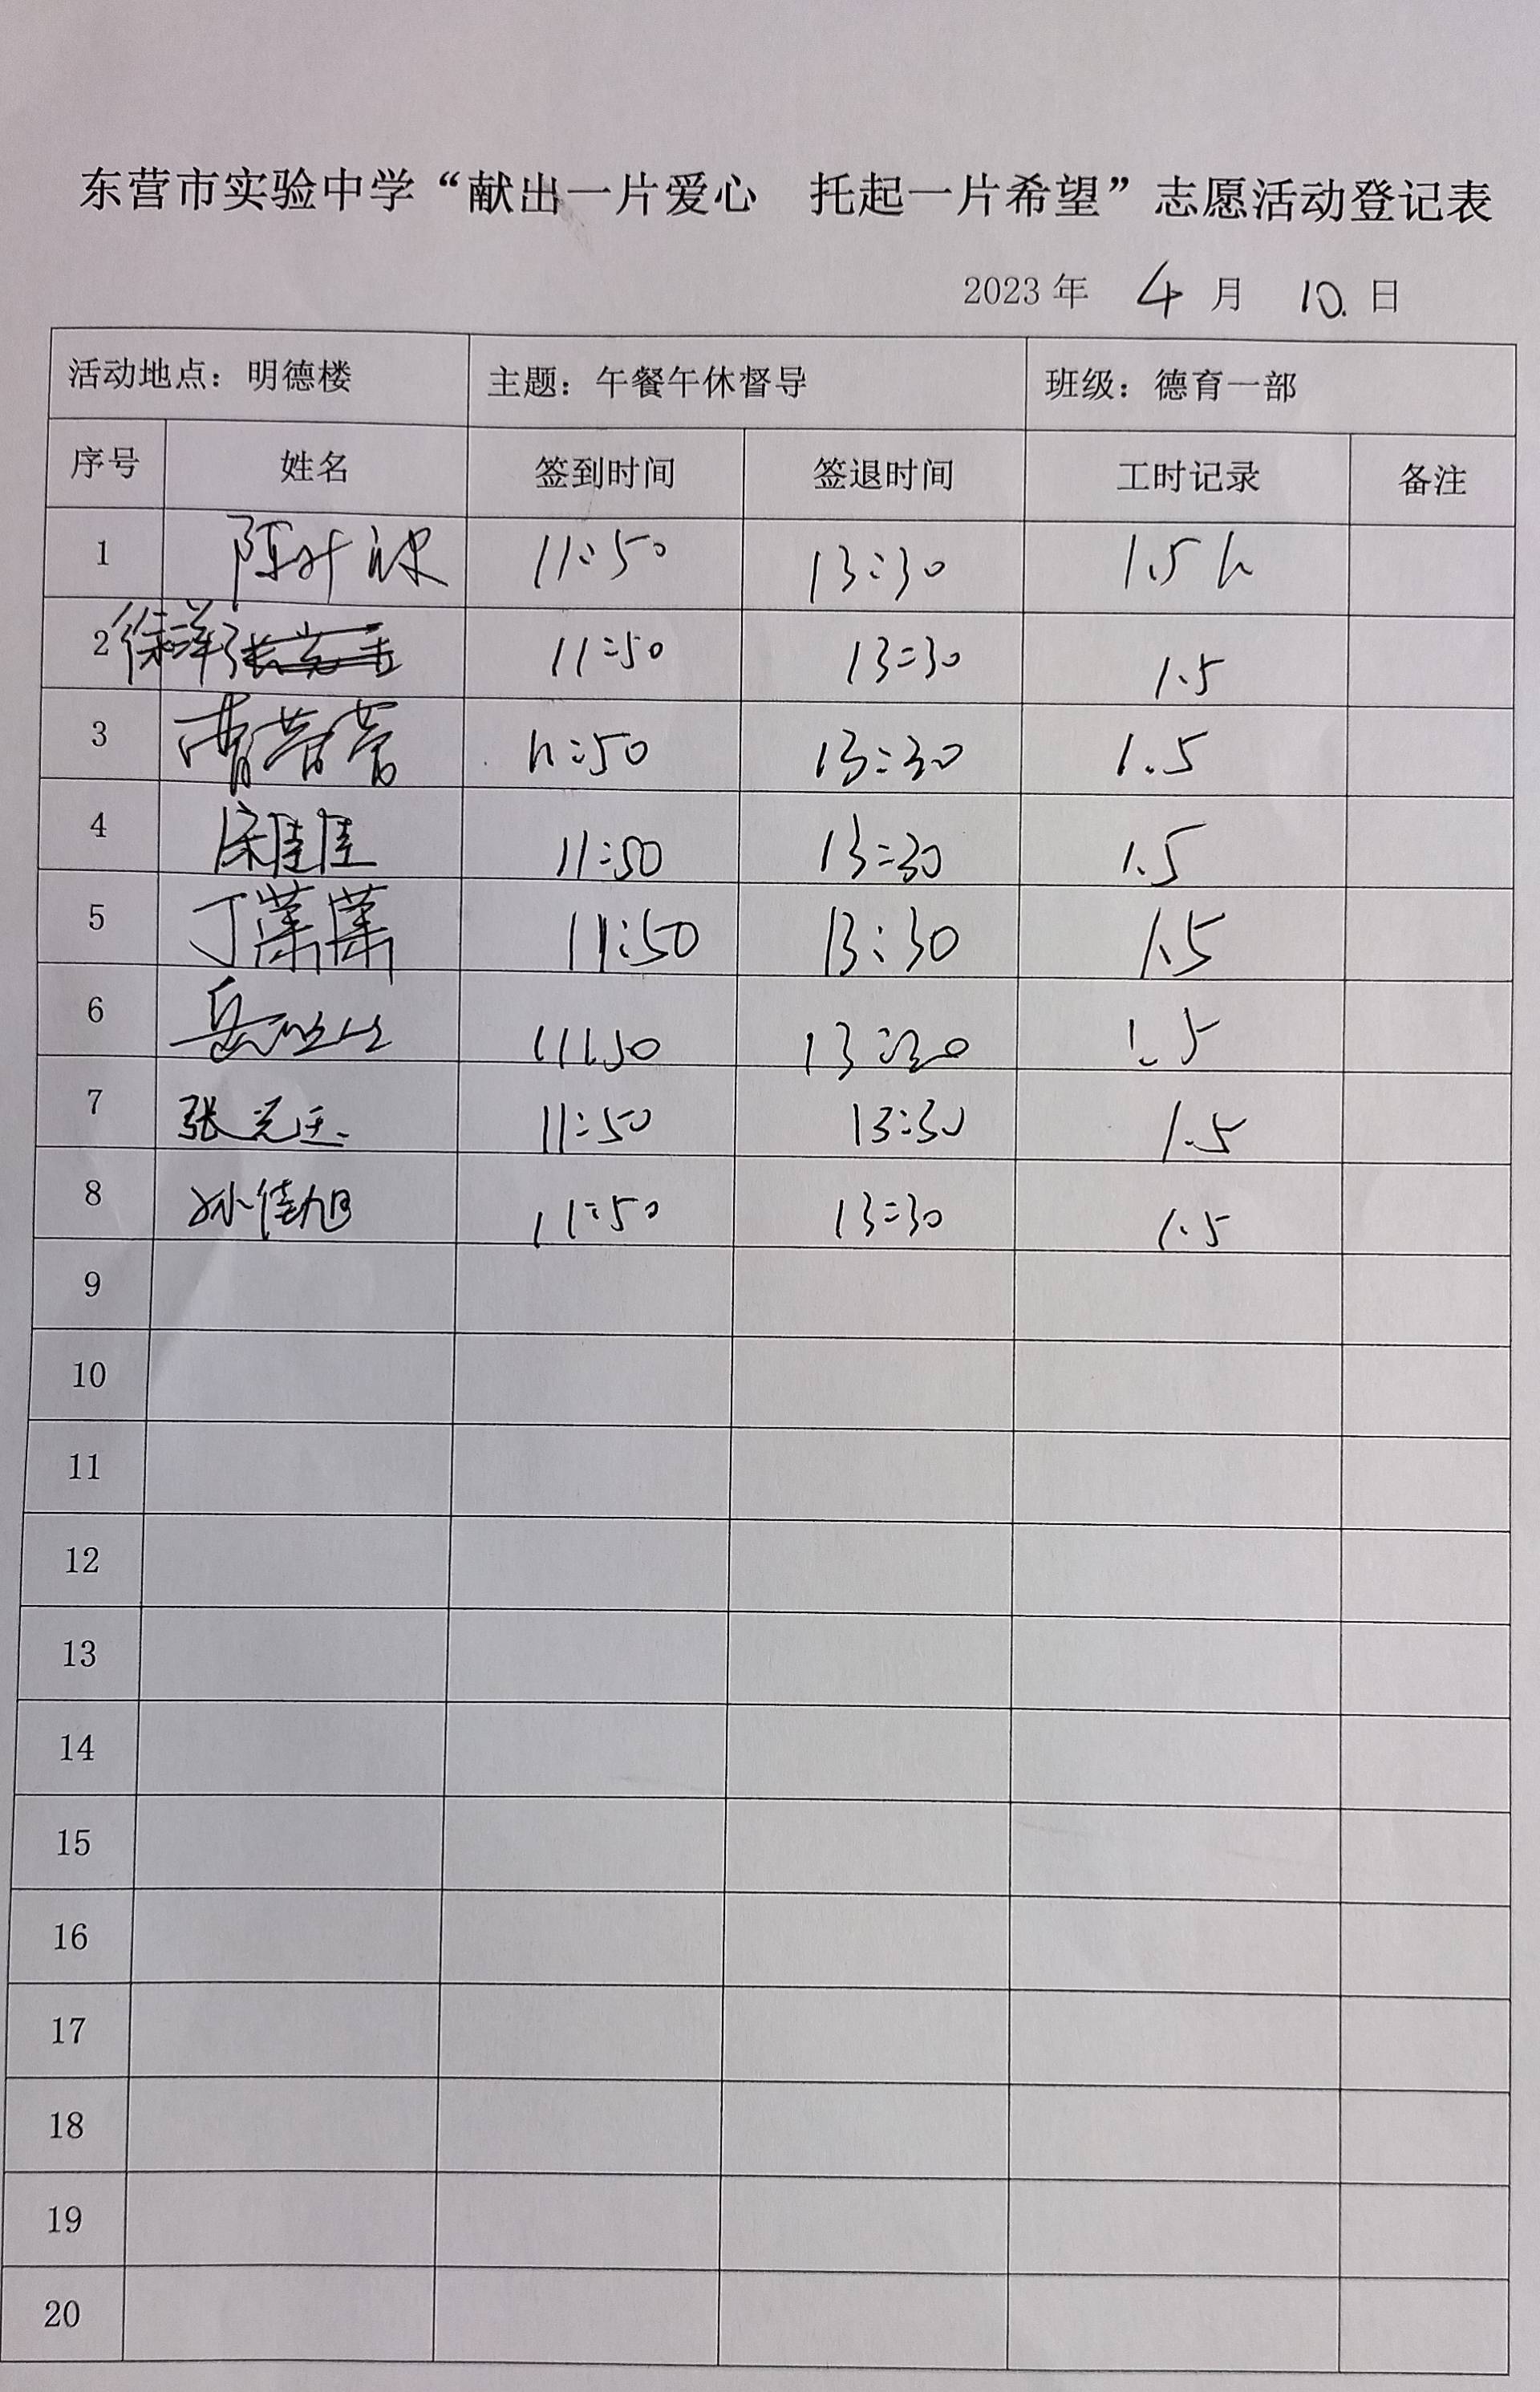 东营市实验中学“献出一片爱心 托起一片希望”志愿活动登记表
2023年 4 月 10. 日
活动地点：明德楼 主题：午餐午休督导 班级：德育一部
序号 姓名 签到时间 签退时间 工时记录 备注
1 陈叶 11:50 13:30 1.5h
2 徐洋 11:50 13:30 1.5
3 曹营营 11:50 13:30 1.5
4 宋佳佳 11:50 13:30 1.5
5 丁潇潇 11:50 13:30 1.5
6 岳 11:50 13:30 1.5
7 张 11:50 13:30 1.5
8 孙佳旭 11:50 13:30 1.5
9
10
11
12
13
14
15
16
17
18
19
20